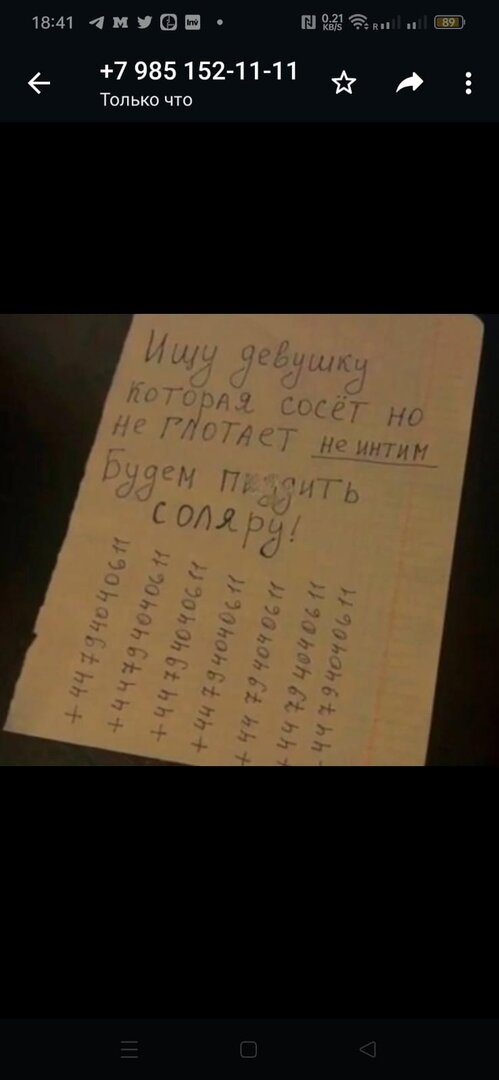 18:41
0.21 KB/S
R
89
+7 985 152-11-11
Только что
Ищу девушку
которая сосёт но
не глотает не интим
Будем
соляру!
+44794040611
+44794040611
+44794040611
+44794040611
+44794040611
+44794040611
44794040611